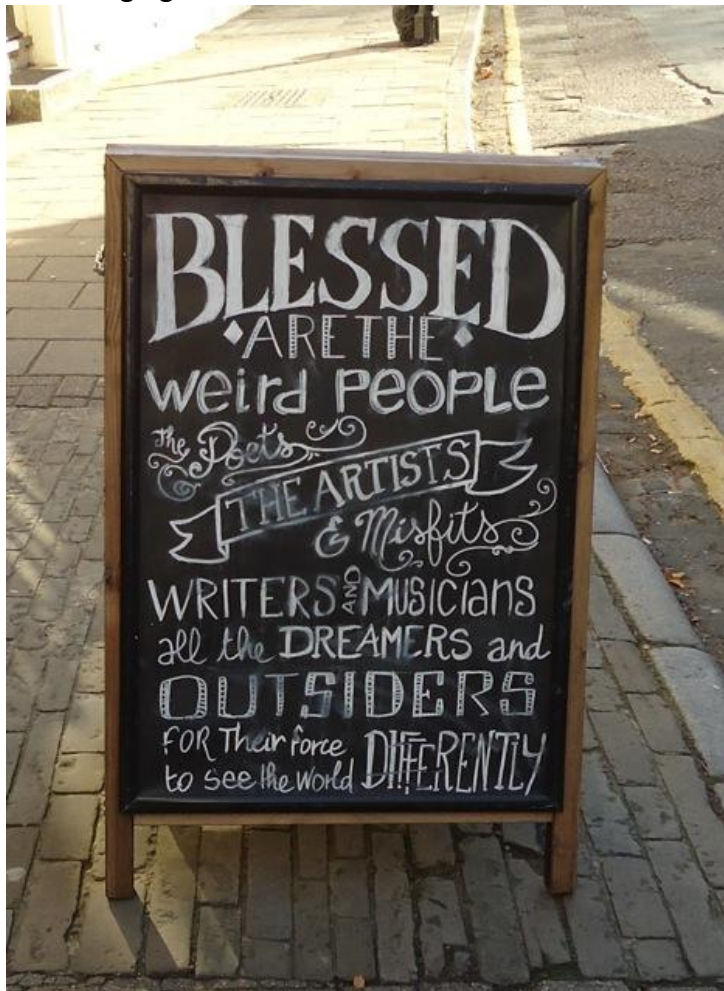 BLESSED
ARE THE
weird PEOPLE
The Poets
THE ARTISTS
& Misfits
WRITERS AND MUSICIANS
all the DREAMERS and
OUTSIDERS
FOR Their force
to see the World DIFFERENTLY